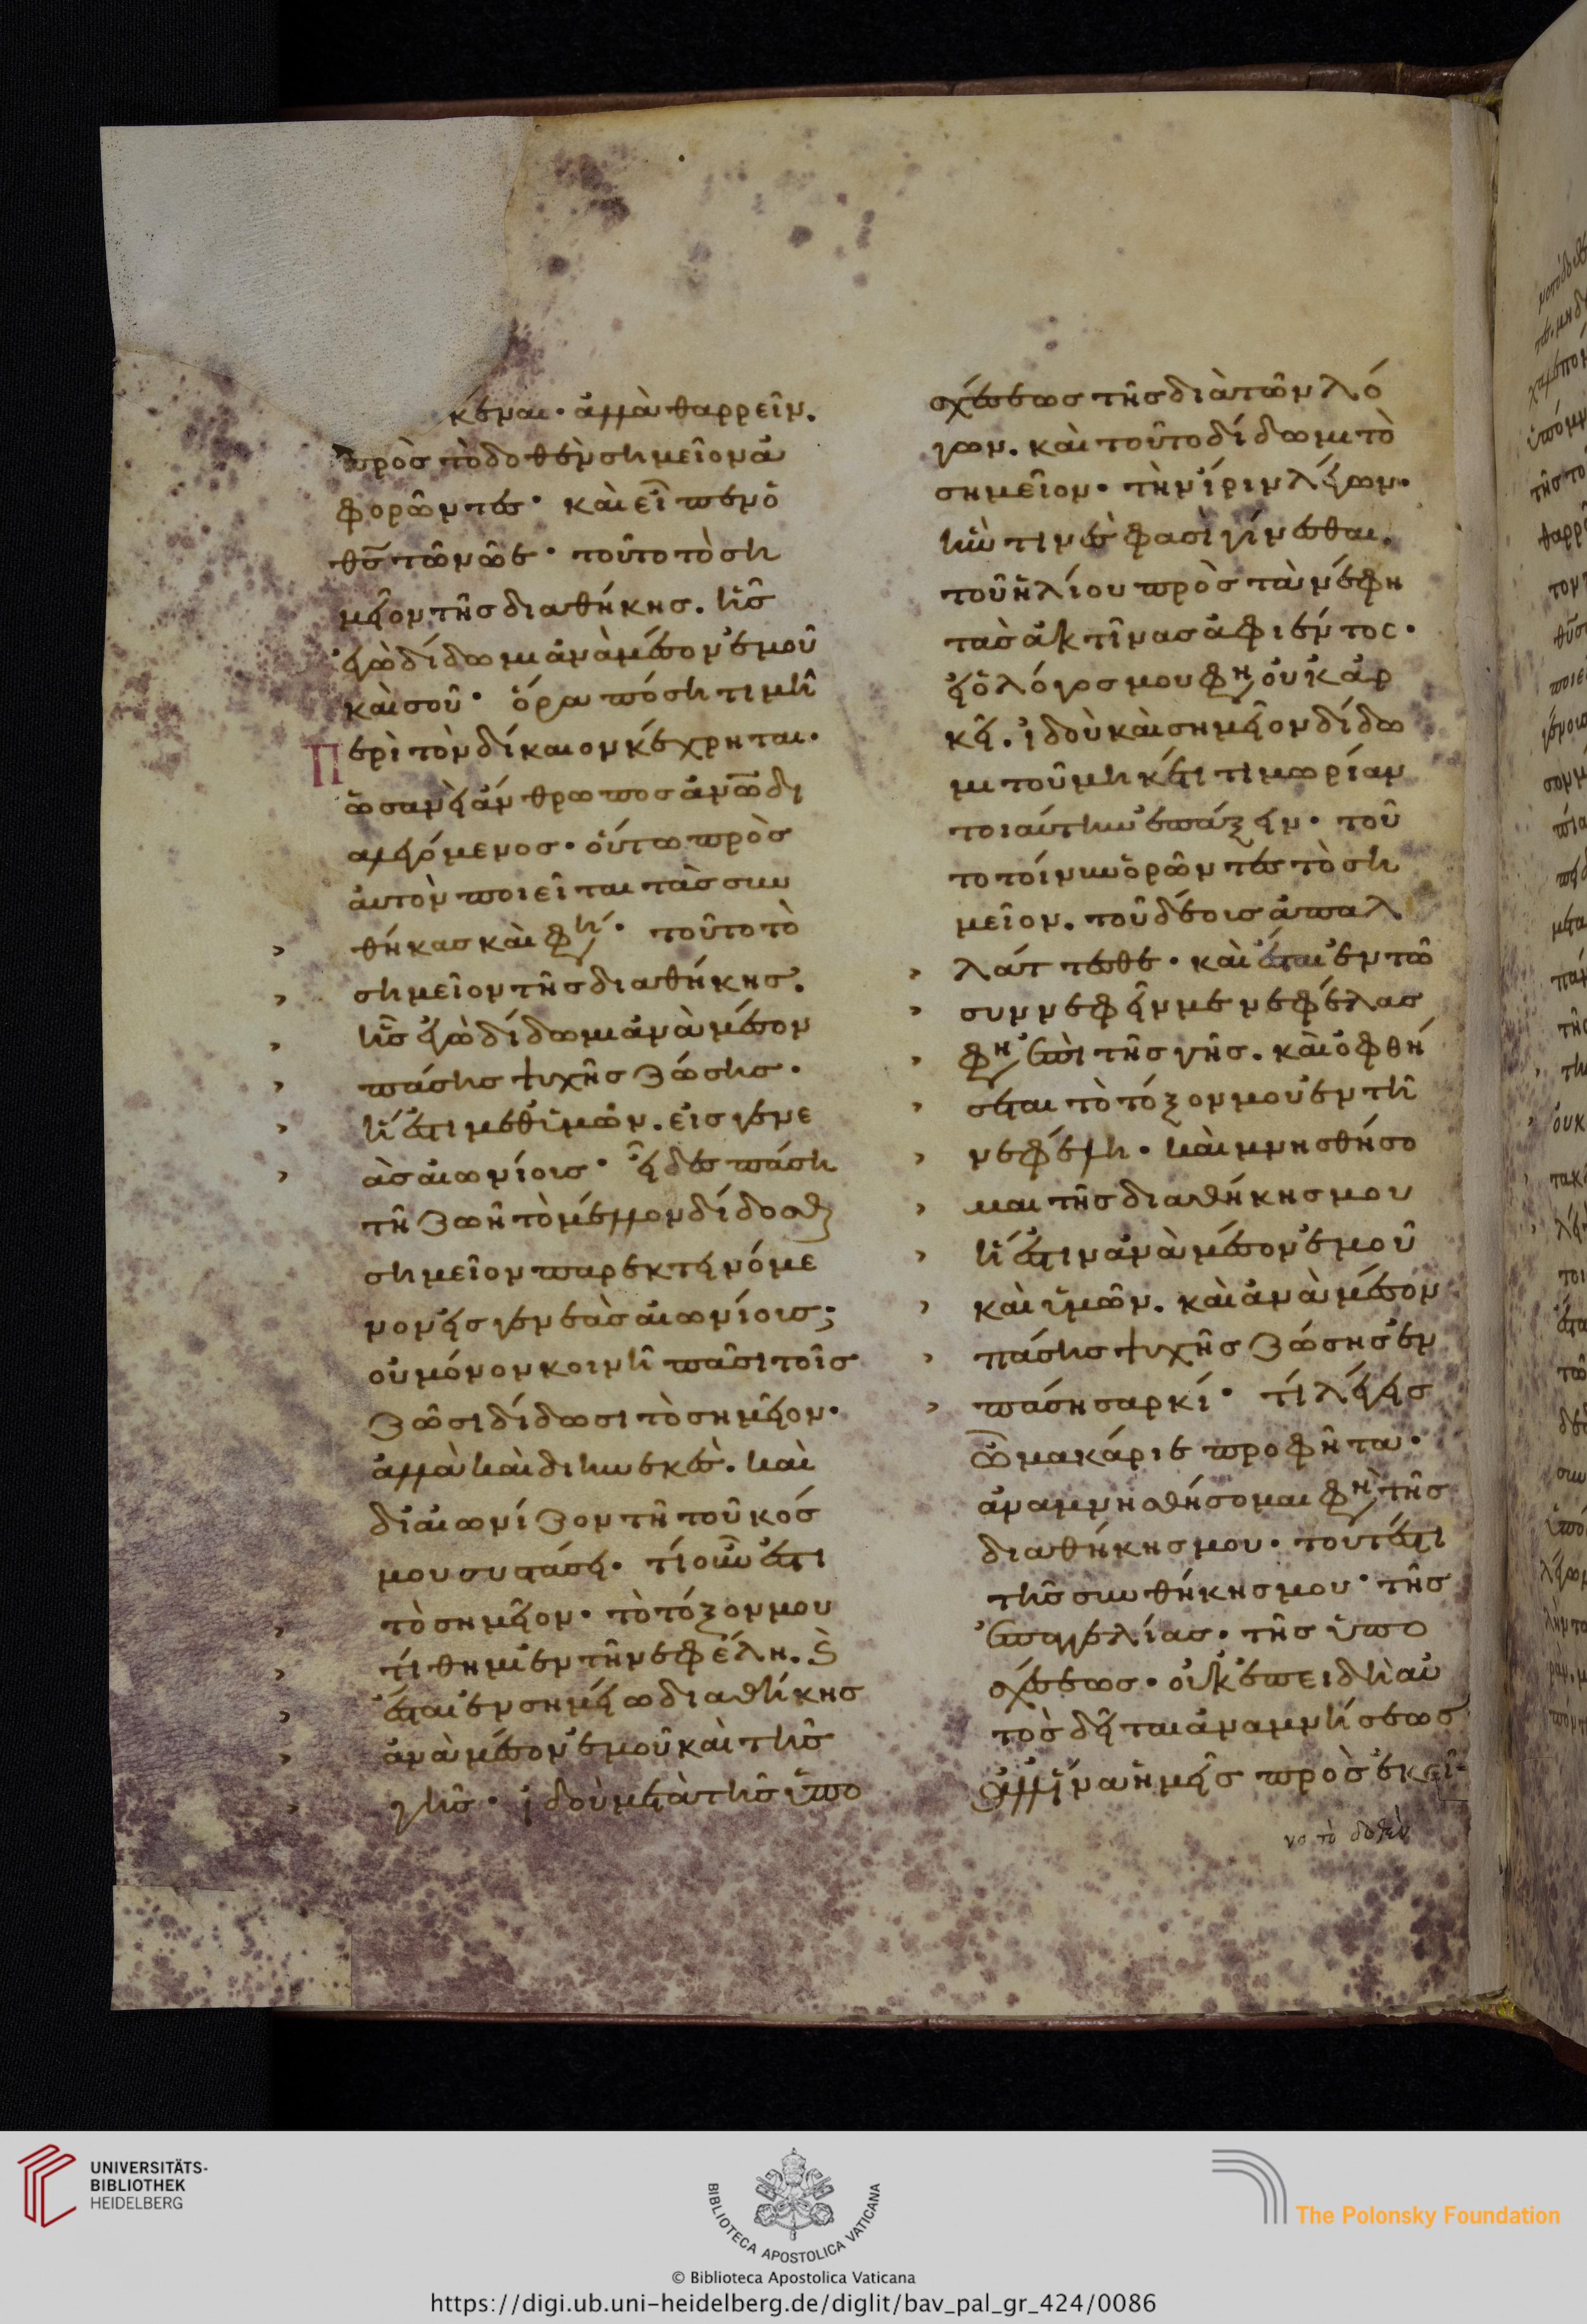 κέναι· ἀλλὰ θαρρεῖν.
πρὸς τὸ δοθὲν σημεῖον ἀ
φορῶντες· καὶ εἶπεν ὁ
θς τῶ νῶε· τοῦτο τὸ ση
μεῖον τῆς διαθήκης. ἧς
ἐγὼ δίδωμι ἀνὰ μέσον ἐμοῦ
καὶ σοῦ· ὅρα πόση τιμῆ
περὶ τὸν δίκαιον κέχρηται·
ὡσανεὶ ἄνθρωπος ἀνω δι
αλεγόμενος· οὕτω πρὸς
αὐτὸν ποιεῖται τὰς συν
θήκας καὶ φη· τοῦτο τὸ
σημεῖον τῆς διαθήκης.
ἧς ἐγὼ δίδωμι ἀνὰ μέσον
πάσης ψυχῆς ζώσης.
ἥ ἐστι μεθ ὑμῶν. εἰς γενε
ὰς αἰωνίοις· εἶδες πάση
τῆ ζωῆ τὸ μέλλον δίδοσθ
σημεῖον παρεκτεινόμε
νον εἰς γενεὰς αἰωνίοις;
οὐ μόνον κοινῆ πᾶσι τοῖς
ζῶσι δίδωσι τὸ σημεῖον·
ἀλλὰ καὶ διηνεκὲς. καὶ
διαιωνίζον τῆ τοῦ κόσ
μου συστάσει· τί οὖν ἐστι
τὸ σημεῖον· τὸ τόξον μου
τίθημι ἐν τῆ νεφέλη. Ϛ
ἔσται ἐν σημείω διαθήκης
ἀνὰ μέσον ἐμοῦ καὶ τῆς
γῆς· ἰδοὺ μετὰ τῆς ὑπο
σχέσεως τῆς διὰ τῶν λό
γων. καὶ τοῦτο δίδωμι τὸ
σημεῖον· τὴν ἶριν λέγων·
ἥν τινὲς φασὶ γίνεσθαι.
τοῦ ἡλίου πρὸς τὰ νέφη
τὰς ἀκτῖνας ἀφιέντος·
εἰ ὁ λόγος μου φη οὐκ ἀρ
κεῖ. ἰδοὺ καὶ σημεῖον δίδω
μι τοῦ μηκέτι τιμωρίαν
τοιαύτην ἐπάξειν· τοῦ
το τοίνυν ὁρῶντες τὸ ση
μεῖον. τοῦ δέους ἀπαλ
λάττεσθε· καὶ ἔσται ἐν τῶ
συννεφεῖν με νεφέλας
φη ἐπὶ τῆς γῆς. καὶ ὀφθή
σεται τὸ τόξον μου ἐν τῆ
νεφέλη. καὶ μνησθήσο
μαι τῆς διαθήκης μου
ἥ ἐστιν ἀνὰ μέσον ἐμοῦ
καὶ ὑμῶν. καὶ ἀνὰ μέσον
πάσης ψυχῆς ζώσης ἐν
πάση σαρκί· τί λέγεις
ὦ μακάριε προφῆτα·
ἀναμνησθήσομαι φη τῆς
διαθήκης μου· τουτέστι
τῆς συνθήκης μου· τῆς
ἐπαγγελίας. τῆς ὑπο
σχέσεως· οὐκ ἐπειδὴ αὐ
τὸς δεῖται ἀναμνήσεως
ἀλλ ἵνα ἡμεῖς πρὸς ἐκεῖ-
νο τὸ δοθὲν
UNIVERSITÄTS-
BIBLIOTHEK
HEIDELBERG
BIBLIOTECA APOSTOLICA VATICANA
The Polonsky Foundation
© Biblioteca Apostolica Vaticana
https://digi.ub.uni-heidelberg.de/diglit/bav_pal_gr_424/0086